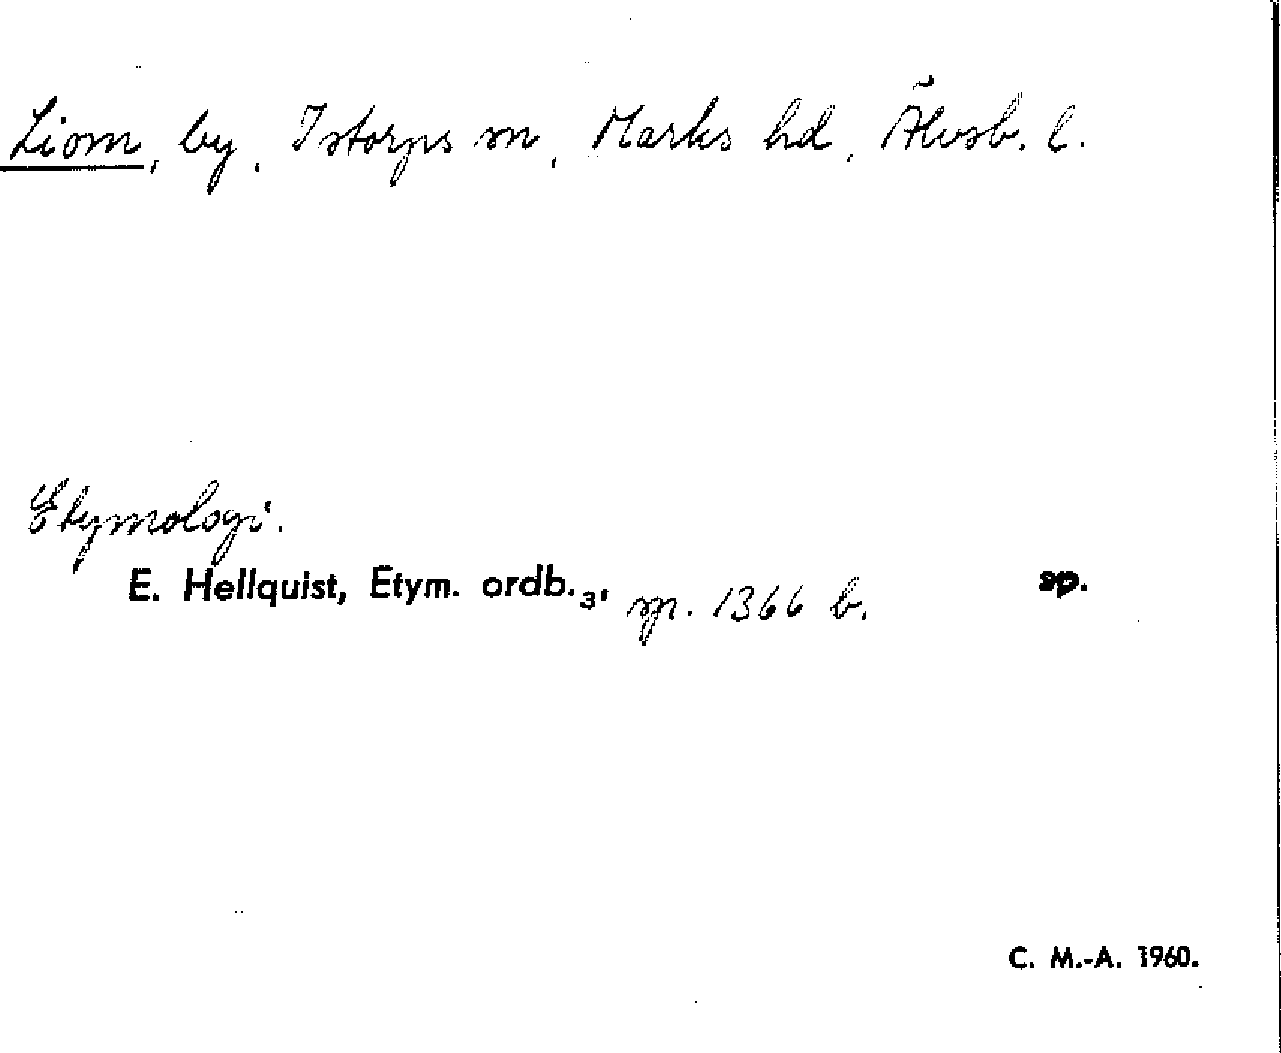 Liom, by, Istorps sn, Marks hd, Älvsb. l.
Etymologi.
E. Hellquist, Etym. ordb.₃, sp. 1366 b. sp.
C. M.-A. 1960.